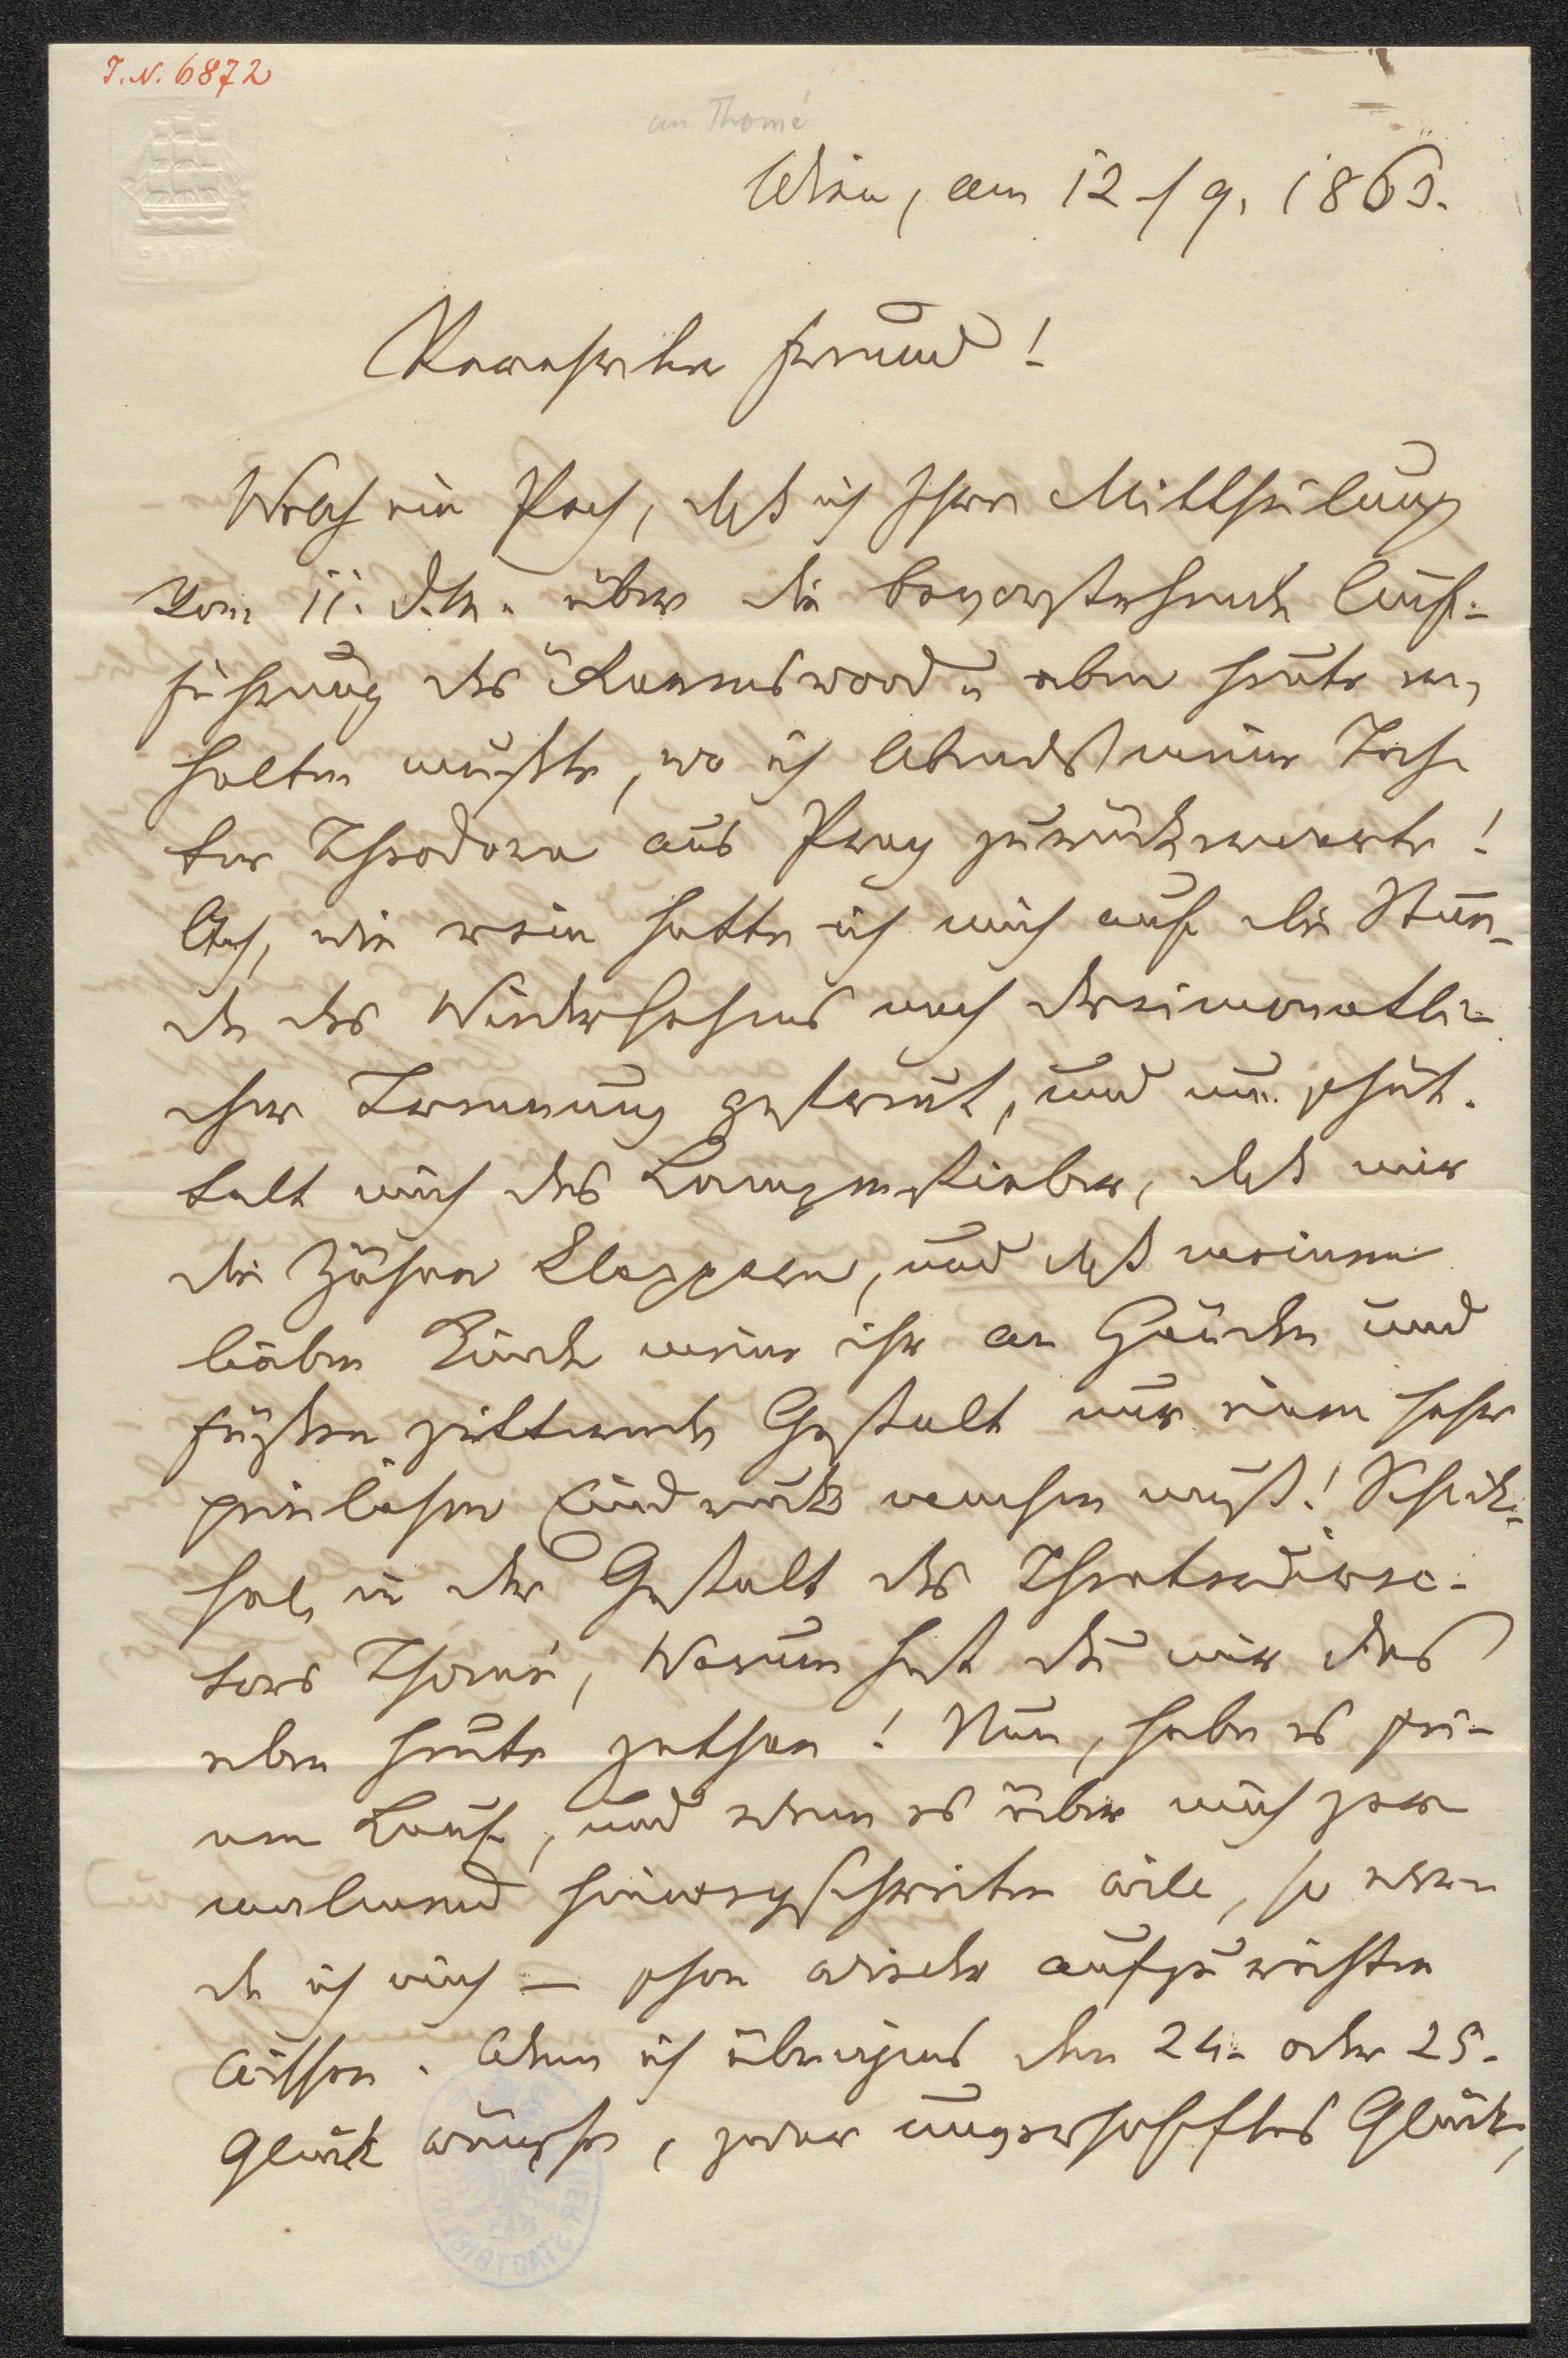 I.N. 6872
an Thomé
Wien, am 12./9. 1863.
Verehrter Freund!
Welch ein Pech, daß ich Ihre Mittheilung
vom 11. d.M. über die bevorstehende Auf-
führung des "Ravenswood" eben heute er-
halten mußte, wo ich Abends meine Toch
ter Theodora aus Prag zurückerwarte!
Ach, wie rein hatte ich mich auf die Stun-
de des Wiedersehens nach dreimonatli-
cher Trennung gefreut, und nun schüt-
telt mich das Lampenfieber, daß mir
die Zähne klappern, und daß meinem
lieben Kinde meine ihr an Händen und
Füßen zitternde Gestalt nur einen sehr
peinlichen Eindruck machen muß! Schick-
sal, in der Gestalt des Theaterdirec-
tors Thomé, Warum hast du mir das
eben heute gethan! Nun, habe es sei-
nen Lauf, und wenn es über mich zer-
malmend hinwegschreiten will, so wer-
de ich mich — schon wieder aufzurichten
wissen. Wenn ich übrigens den 24. oder 25.
Glück wünsche, zwar ungerhofftes Glück,